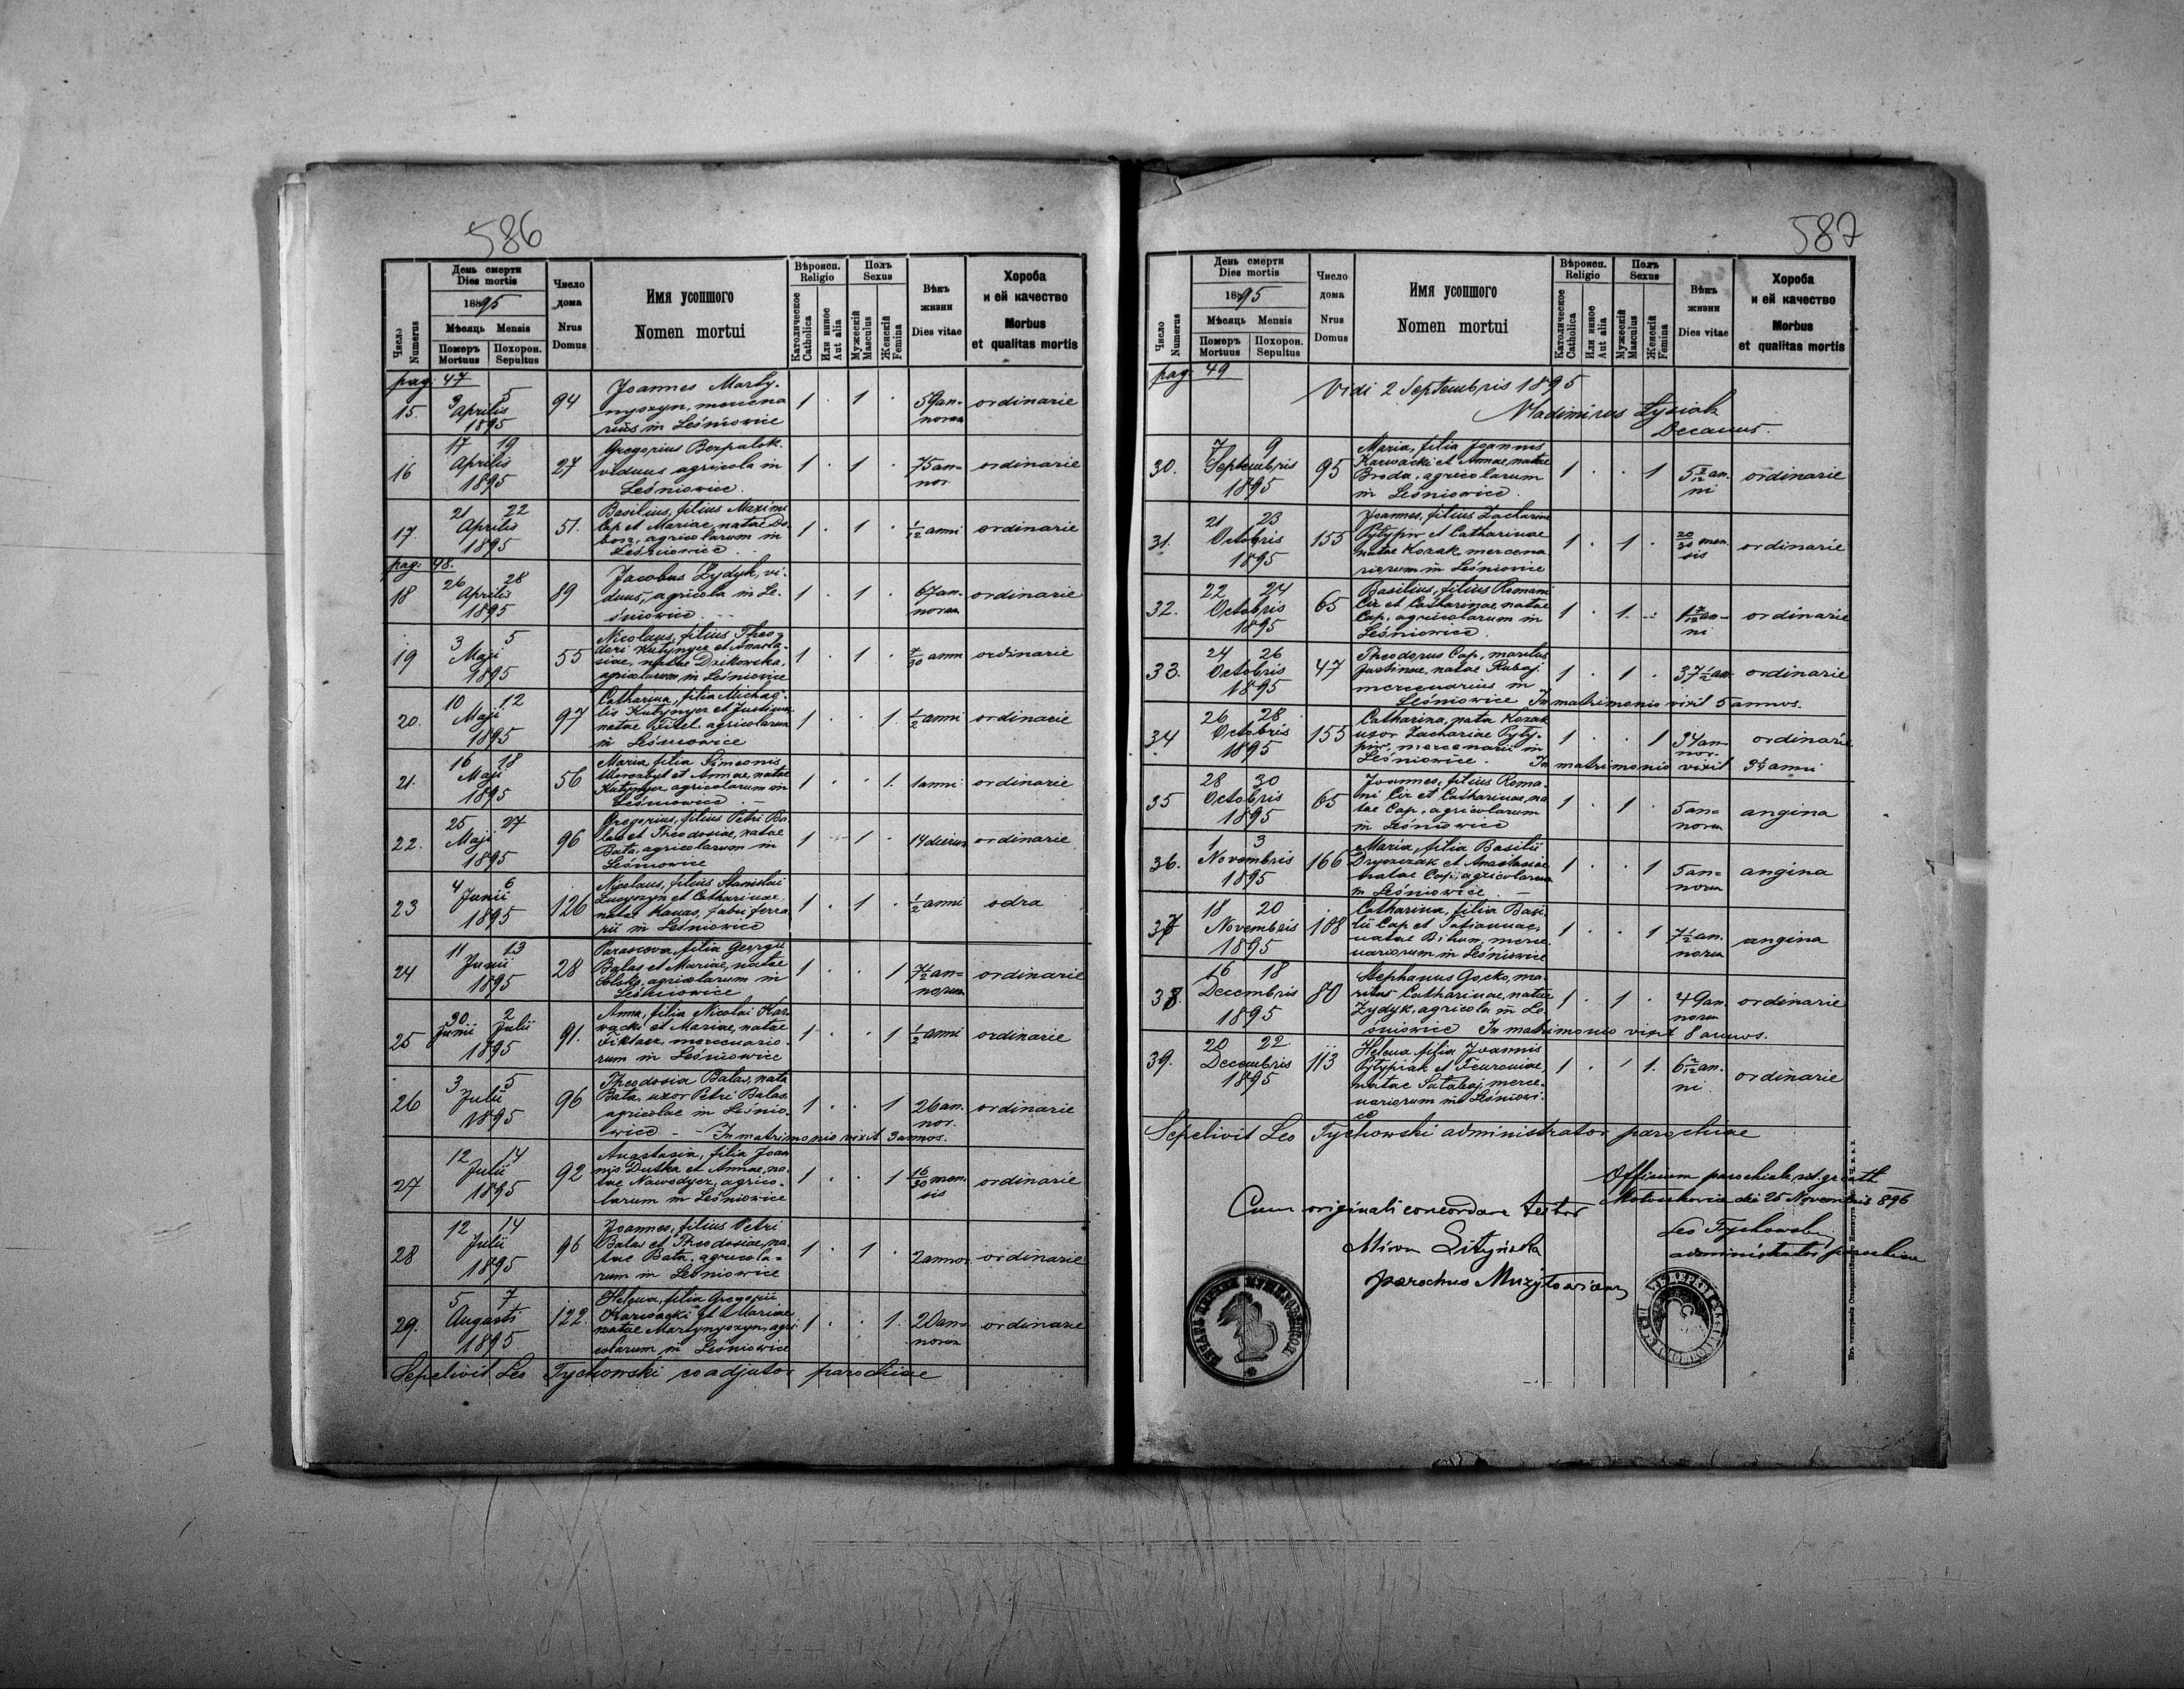 586
Число Numerus
День смерти
Dies mortis
1895
Мѣсяць Mensis
Померъ Mortuus
Похорон. Sepultus
Число дома
Nrus Domus
Имя усопшого
Nomen mortui
Вѣроисп. Religio
Католическое Catholica
Или иное Aut alia
Полъ Sexus
Мужескій Masculus
Женскій Femina
Вѣкъ жизни
Dies vitae
Хороба
и ей качество
Morbus
et qualitas mortis
pag. 47
15. 3 5 Aprilis 1895 94
Joannes Marty-
nyszyn, mercena
rius in Leśniowice
1 . 1 . 59 an-
norum
ordinarie
16 17 19 Aprilis 1895 27
Gregorius Bezpalok.
viduus agricola in
Leśniowice.
1 . 1 . 75 an-
nor.
ordinarie
17. 21 22 Aprilis 1895 51.
Basilius, filius Maximi
Cap et Mariae, natae Do-
bosz, agricolarum in
Leśniowice
1 . 1 . 1/12 anni
ordinarie
pag. 48.
18 26 28 Aprilis 1895 89
Jacobus Zydyk, vi-
duus, agricola in Le-
śniowice
1 . 1 . 67 an-
norum
ordinarie
19 3 5 Maji 1895 55
Nicolaus, filius Theo-
dori Kutynycz et Anasta-
siae, natae Dzikowska,
agricolarum in Leśniowice
1 . 1 . 7/30 anni
ordinarie
20. 10 12 Maji 1895 97
Catharina, filia Michae-
lis Kutynycz et Justinae
natae Fitel. agricolarum
in Leśniowice
1 . . 1 1/2 anni
ordinarie
21. 16 18 Maji 1895 56
Maria, filia Simeonis
Worozbyt et Annae, natae
Kutynycz agricolarum in
Leśniowice
1 . . 1. 1 anni
ordinarie
22. 25 27 Maji 1895 96
Gregorius, filius Petri Ba
las et Theodosiae, natae
Bata, agricolarum in
Leśniowice
1 1 . 14 dierum
ordinarie
23 4 6 Junii 1895 126
Nicolaus, filius Stanislai
et Catharinae,
natae Kawas, fabri ferra
rii in Leśniowice
1 . 1 . 1/2 anni
odra
24 11 13 Junii 1895 28
Parascova, filia Georgii
Balas et Mariae, natae
agricolarum in
Leśniowice
1 . . 1 7 1/2 an-
norum
ordinarie
25 30 Junii 2 Julii 1895 91.
Anna, filia Nicolai Kar
wacki et Mariae, natae
mercenario-
rum in Leśniowice
1 . . 1 1/2 anni
ordinarie
26 3 5 Julii 1895 96
Theodosia Balas, nata
Bata, uxor Petri Balas
agricolae in Leśnio-
wice - In matrimonio vixit 3 annos.
1 . . 1 26 an.
nor.
ordinarie
27 12 14 Julii 1895 92
Anastasia, filia Joan
nis Dutka et Annae, na-
tae Nawodycz, agrico-
larum in Leśniowice
1 . . 1 16/30 men
sis
ordinarie
28 12 14 Julii 1895 96
Joannes, filius Petri
Balas et Theodosiae, na
tae Bata, agricola-
rum in Leśniowice
1 . 1 . 2 annor
ordinarie
29. 5 7 Augusti 1895 122.
Helena, filia Gregorii
Karwacki et Mariae
natae Martynyszyn, agri-
colarum in Leśniowice
1 . . 1. 20 an-
norum
ordinarie
Sepelivit Leo Tychowski coadjutor parochiae
587
Число Numerus
День смерти
Dies mortis
1895
Мѣсяць Mensis
Померъ Mortuus
Похорон. Sepultus
Число дома
Nrus Domus
Имя усопшого
Nomen mortui
Вѣроисп. Religio
Католическое Catholica
Или иное Aut alia
Полъ Sexus
Мужескій Masculus
Женскій Femina
Вѣкъ жизни
Dies vitae
Хороба
и ей качество
Morbus
et qualitas mortis
pag. 49
Vidi 2 Septembris 1895
Vladimirus Łysiak
Decanus.
30. 7 9 Septembris 1895 95
Maria, filia Joannis
Karwacki et Annae, natae
Broda, agricolarum
in Leśniowice.
1 . . 1 5 2/12 an.
ni
ordinarie
31. 21 23 Octobris 1895 155
Joannes, filius Zachariae
Pytypiw et Catharinae
natae Kozak, mercena
riorum in Leśniowice
1 . 1 . 20/30 men
sis
ordinarie
32. 22 24 Octobris 1895 65
Basilius, filius Romani
Cir et Catharinae, natae
Cap, agricolarum in
Leśniowice.
1 . 1. 1 7/12 an-
ni
ordinarie
33. 24 26 Octobris 1895 47
Theodorus Cap, maritus
Justinae, natae Rubaj
mercenarius in
Leśniowice In matrimonio vixit 5 annos.
1 . 1 . 37 1/2 an.
ordinarie
34 26 28 Octobris 1895 155
Catharina, nata Kozak
uxor Zachariae Pyty-
piw, mercenarii in
Leśniowice. In matrimonio vixit anni
1 . . 1 34 an
nor.
ordinarie
35 28 30 Octobris 1895 65
Joannes, filius Roma-
ni Cir et Catharinae, na
tae Cap, agricolarum
in Leśniowice
1 . 1 . 5 an-
norum
angina
36. 1 3 Novembris 1895 166
Maria, filia Basilii
Dryszczak et Anastasiae
natae Cap, agricolarum
in Leśniowice
1 . . 1 5 an-
norum
angina
37 18 20 Novembris 1895 108
Catharina, filia Basi
lii Cap et Tatiannae,
natae Bihun, merce-
nariorum in Leśniowice
1 . . 1 7 1/2 an.
norum
angina
38. 16 18 Decembris 1895 80
Stephanus Gocko, ma-
ritus Catharinae, natae
Zydyk, agricola in Le
śniowice In matrimonio vixit 8 annos.
1 . 1 . 49 an
norum
ordinarie
39. 20 22 Decembris 1895 113
Helena, filia Joannis
Pytypiak et Feuroniae,
natae Satabaj, merce-
nariorum in Leśniowi-
ce
1 . 1. 6 2/12 an.
ni
ordinarie
Sepelivit Leo Tychowski administrator parochiae
Officium parochiale rit. gr. cath
die 25 Novembris 896
Cum originali concordare testor
Leo Tychowski
administrator parochiae
Miron
parochus